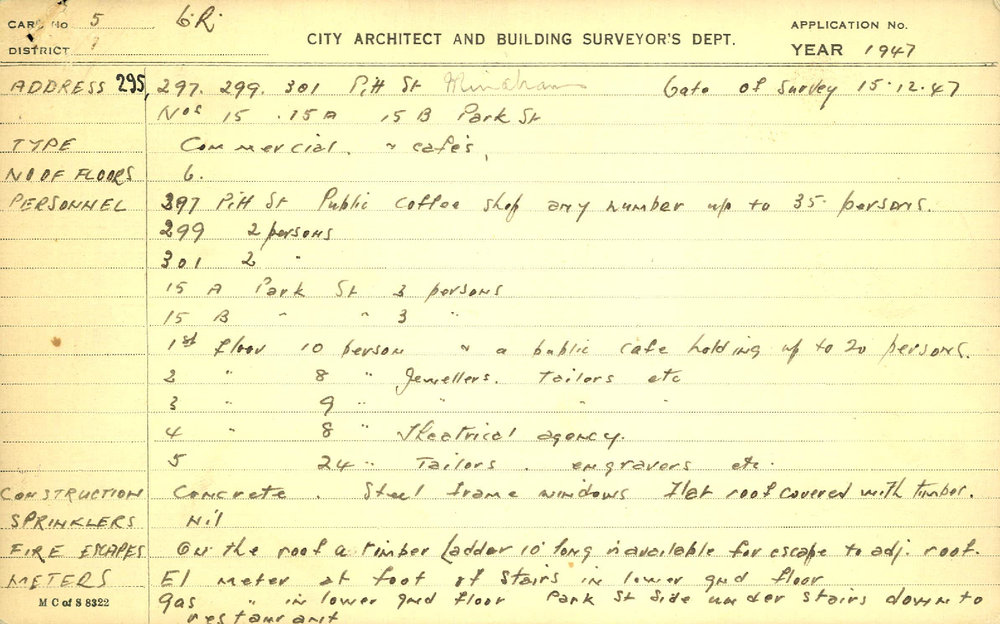 CARD No 5 G.R.
DISTRICT 7
CITY ARCHITECT AND BUILDING SURVEYOR'S DEPT.
APPLICATION No.
YEAR 1947
ADDRESS 295, 297. 299. 301 Pitt St Minahan Date of Survey 15.12.47
Nos 15 . 15A 15 B Park St
TYPE Commercial. & cafe's,
NO OF FLOORS 6.
PERSONNEL 297 Pitt St Public coffee shop any number up to 35 persons.
299 2 persons
301 2 "
15 A Park St 3 persons
15 B " " 3 "
1st floor 10 person & a public cafe holding up to 20 persons.
2 " 8 " Jewellers. Tailors etc
3 " 9 " " "
4 " 8 " Theatrical agency.
5 24 " Tailors. engravers etc.
CONSTRUCTION Concrete. Steel frame windows Flat roof covered with timber.
SPRINKLERS Nil
FIRE ESCAPES On the roof a timber ladder 10' long is available for escape to adj. roof.
METERS El meter at foot of stairs in lower gnd floor
Gas " in lower gnd floor Park St side under stairs down to
restaurant
M C of S 8322